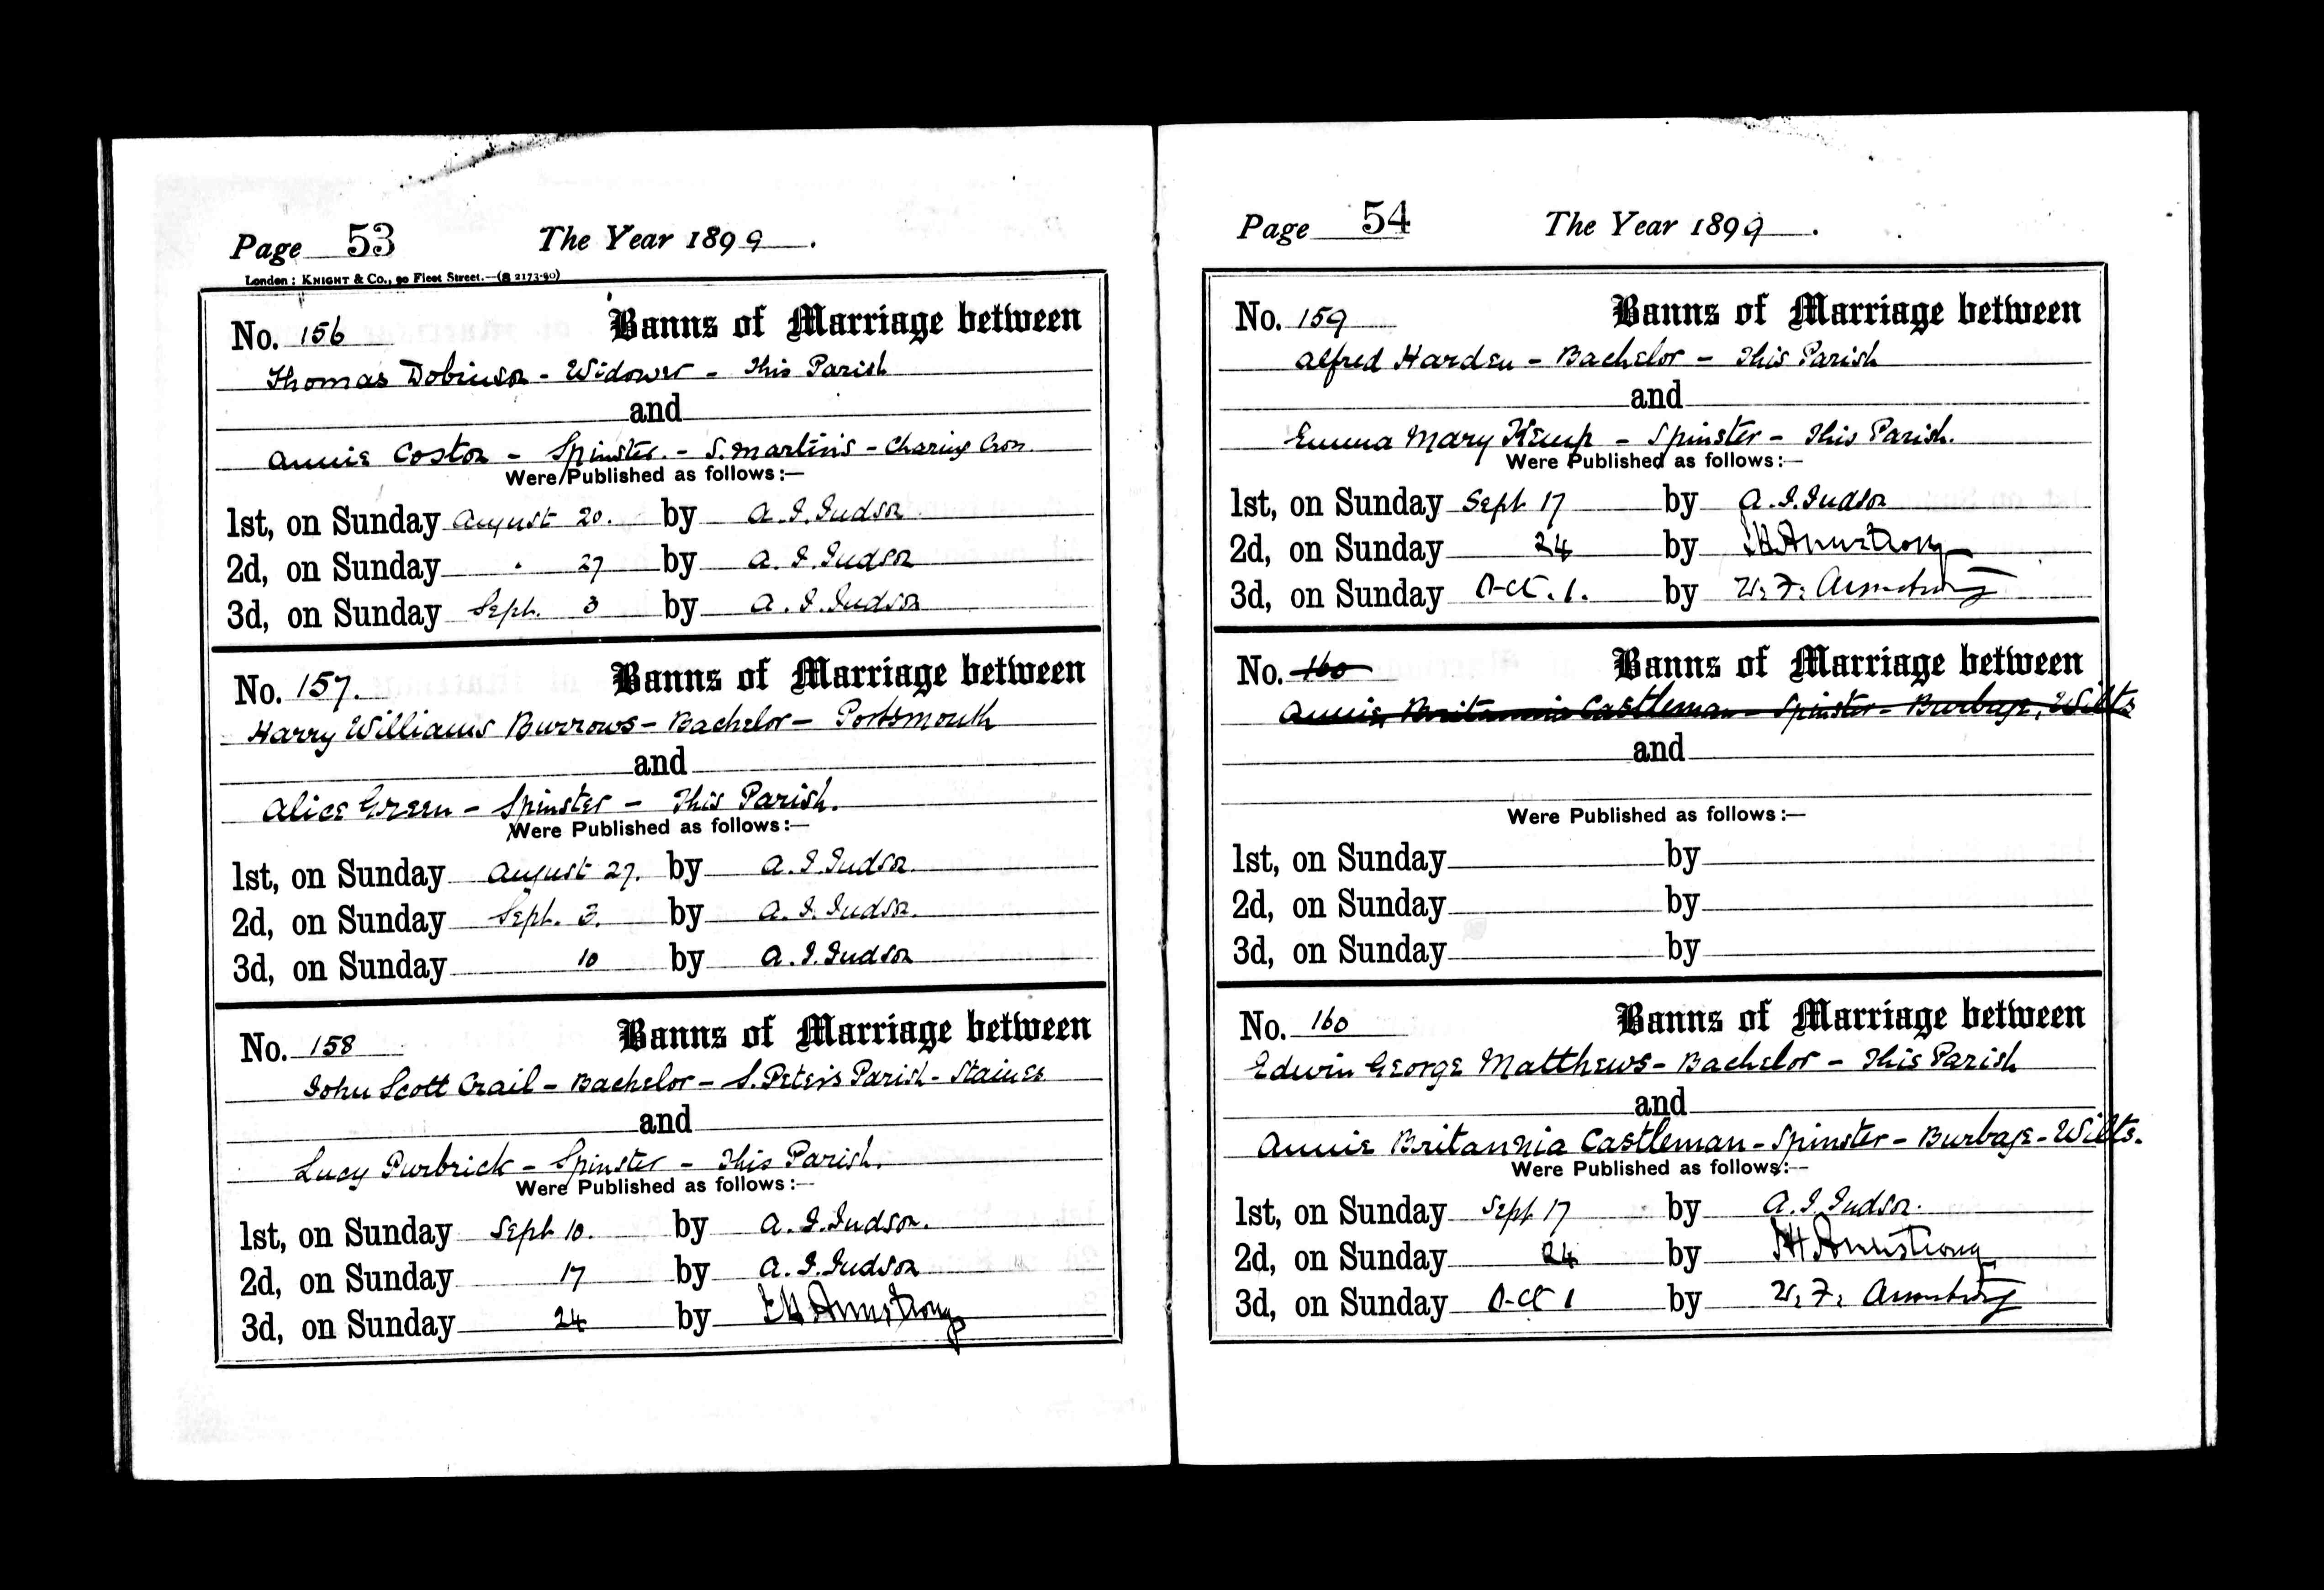 Page 53 The Year 1899.
London: KNIGHT & Co., 90 Fleet Street.—(S 2173-90)
No. 156 Banns of Marriage between
Thomas Dobinson - Widower - This Parish
and
Annie Coston - Spinster. - S. Martin's - Charing Cross.
Were Published as follows:—
1st, on Sunday August 20. by A. J. Judson
2d, on Sunday " 27 by A. J. Judson
3d, on Sunday Sept. 3 by A. J. Judson
No. 157. Banns of Marriage between
Harry Williams Burrows - Bachelor - Portsmouth
and
Alice Green - Spinster - This Parish.
Were Published as follows:—
1st, on Sunday August 27. by A. J. Judson.
2d, on Sunday Sept. 3. by A. J. Judson.
3d, on Sunday 10 by A. J. Judson
No. 158 Banns of Marriage between
John Scott Crail - Bachelor - S. Peter's Parish - Staines
and
Lucy Purbrick - Spinster - This Parish.
Were Published as follows:—
1st, on Sunday Sept 10. by A. J. Judson.
2d, on Sunday 17 by A. J. Judson
3d, on Sunday 24 by Armstrong
Page 54 The Year 1899.
No. 159 Banns of Marriage between
Alfred Harden - Bachelor - This Parish
and
Emma Mary Kemp - Spinster - This Parish.
Were Published as follows:—
1st, on Sunday Sept. 17 by A. J. Judson
2d, on Sunday 24 by Armstrong
3d, on Sunday Oct. 1. by W. F. Armstrong
No. 160 Banns of Marriage between
Annie Britannia Castleman - Spinster - Burbage, Wilts
and
Were Published as follows:—
1st, on Sunday by
2d, on Sunday by
3d, on Sunday by
No. 160 Banns of Marriage between
Edwin George Matthews - Bachelor - This Parish
and
Annie Britannia Castleman - Spinster - Burbage - Wilts.
Were Published as follows:—
1st, on Sunday Sept 17 by A. J. Judson.
2d, on Sunday 24 by Armstrong
3d, on Sunday Oct 1 by W. F. Armstrong